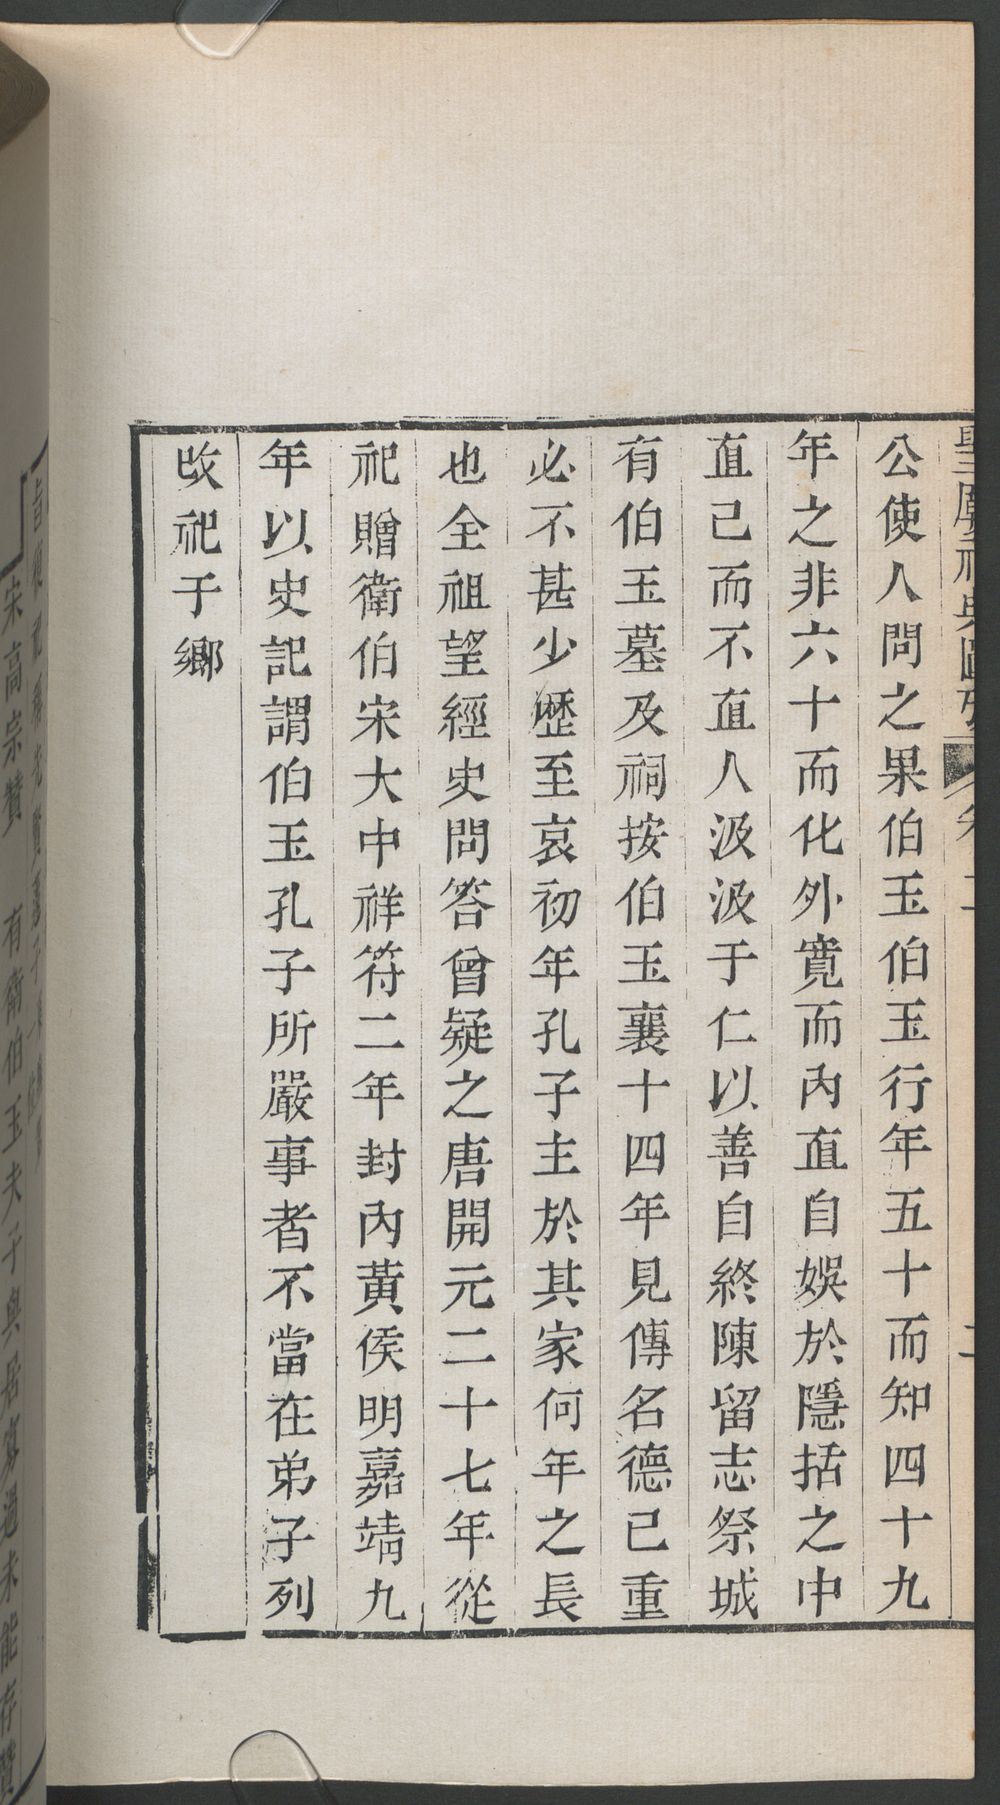 聖廟祀典圖考
公使人問之果伯玉伯玉行年五十而知四十九
年之非六十而化外寬而內直自娛於隱括之中
直己而不直人汲汲于仁以善自終陳留志祭城
有伯玉墓及祠按伯玉襄十四年見傳名德已重
必不甚少歷至哀初年孔子主於其家何年之長
也全祖望經史問答曾疑之唐開元二十七年從
祀贈衛伯宋大中祥符二年封內黃侯明嘉靖九
年以史記謂伯玉孔子所嚴事者不當在弟子列
改祀于鄉
宋高宗贊 有衛伯玉夫子與居寡過未能存贊